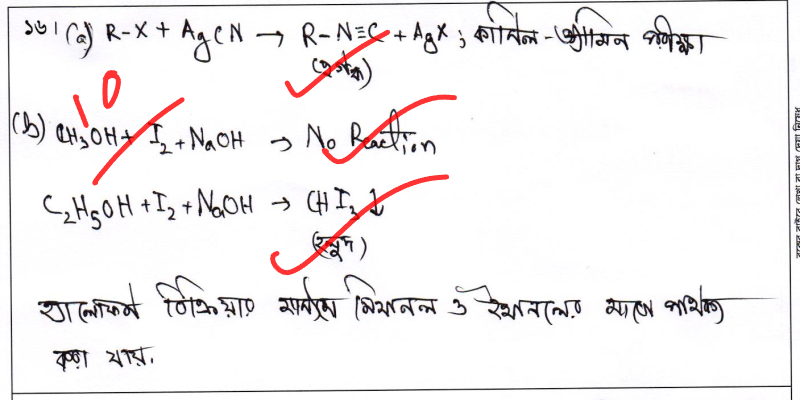 ১৬। (a) R-X + AgCN → R-N≡C + AgX ; কার্বিল-অ্যামিন পরীক্ষা
10
(b) CH₃OH + I₂ + NaOH → No Reaction
C₂H₅OH + I₂ + NaOH → CHI₃ ↓
(হলুদ)
হ্যালোফর্ম বিক্রিয়ার মাধ্যমে মিথানল ও ইথানলের মাঝে পার্থক্য
করা যায়.